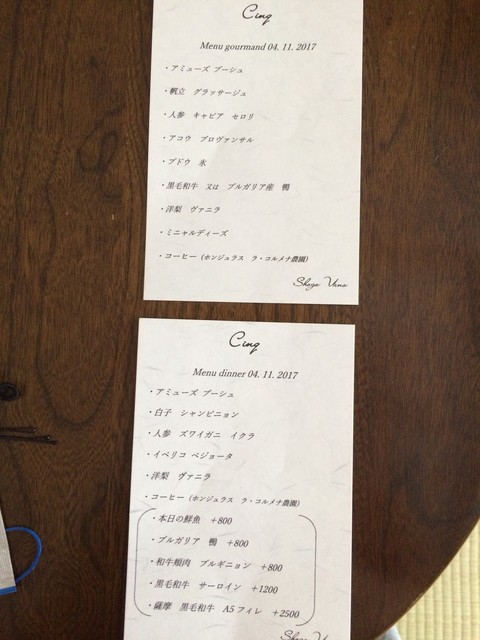 Cinq
Menu gourmand 04. 11. 2017
・アミューズ ブーシュ
・帆立 グラッサージュ
・人参 キャビア セロリ
・アコウ プロヴァンサル
・ブドウ 氷
・黒毛和牛 又は ブルガリア産 鴨
・洋梨 ヴァニラ
・ミニャルディーズ
・コーヒー (ホンジュラス ラ・コルメナ農園)
Cinq
Menu dinner 04. 11. 2017
・アミューズ ブーシュ
・白子 シャンピニョン
・人参 ズワイガニ イクラ
・イベリコ ベジョータ
・洋梨 ヴァニラ
・コーヒー (ホンジュラス ラ・コルメナ農園)
・本日の鮮魚 +800
・ブルガリア 鴨 +800
・和牛頬肉 ブルギニョン +800
・黒毛和牛 サーロイン +1200
・薩摩 黒毛和牛 A5フィレ +2500